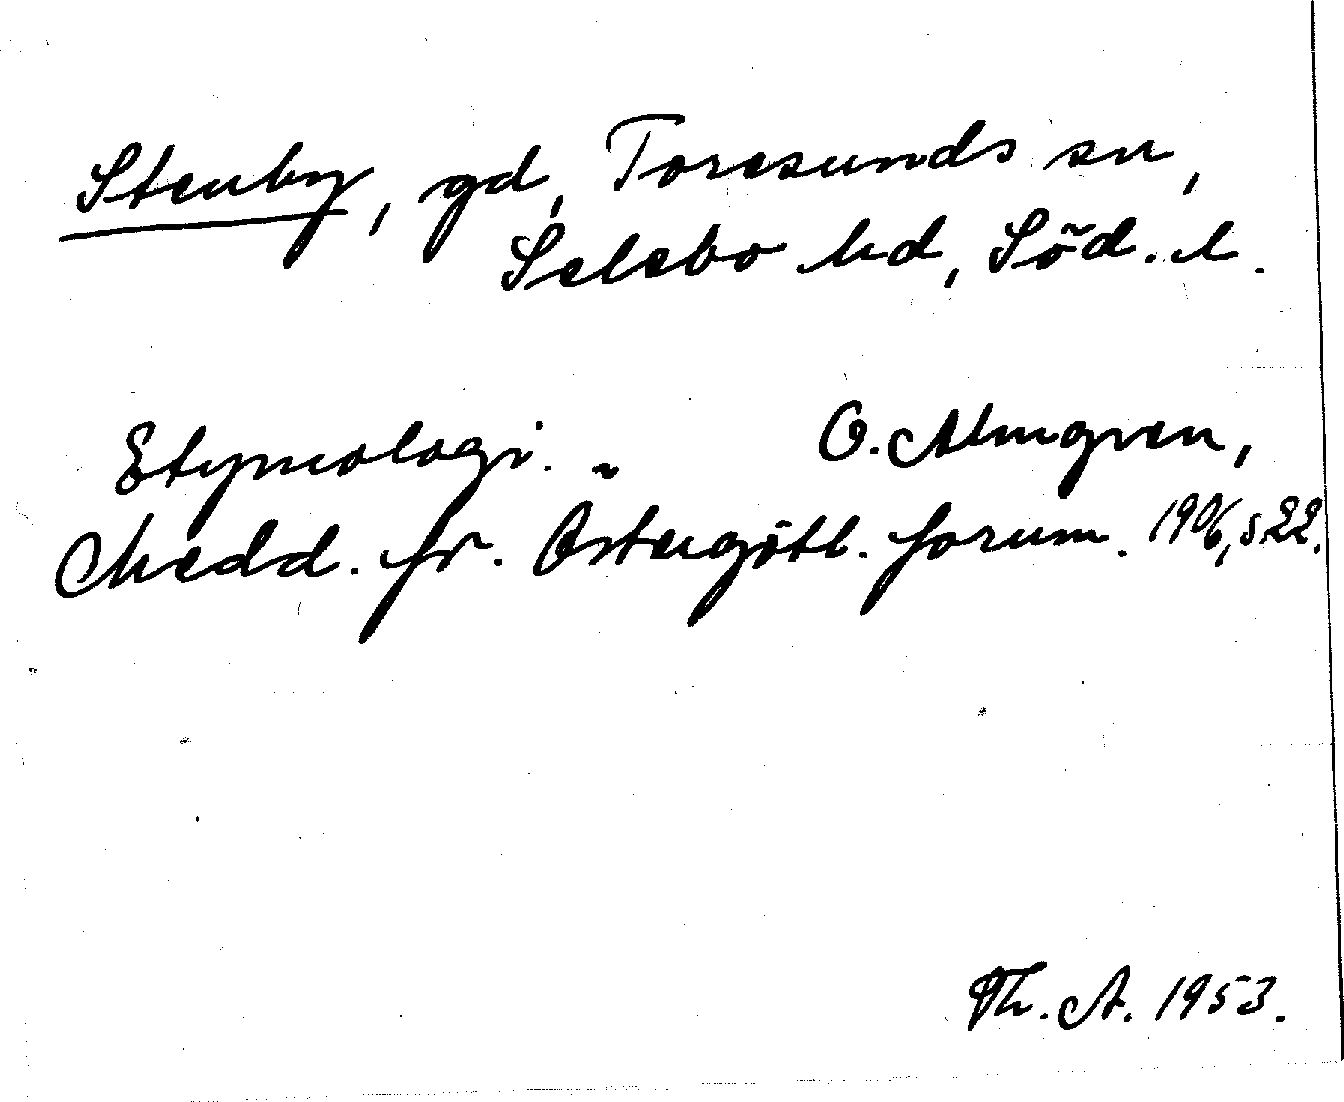 Stenby, gd, Toresunds sn,
Selebo hd, Söd. l.
Etymologi. O. Almgren,
Medd. fr. Östergötl. fornm. 1906, s. 22.
Th. A. 1953.